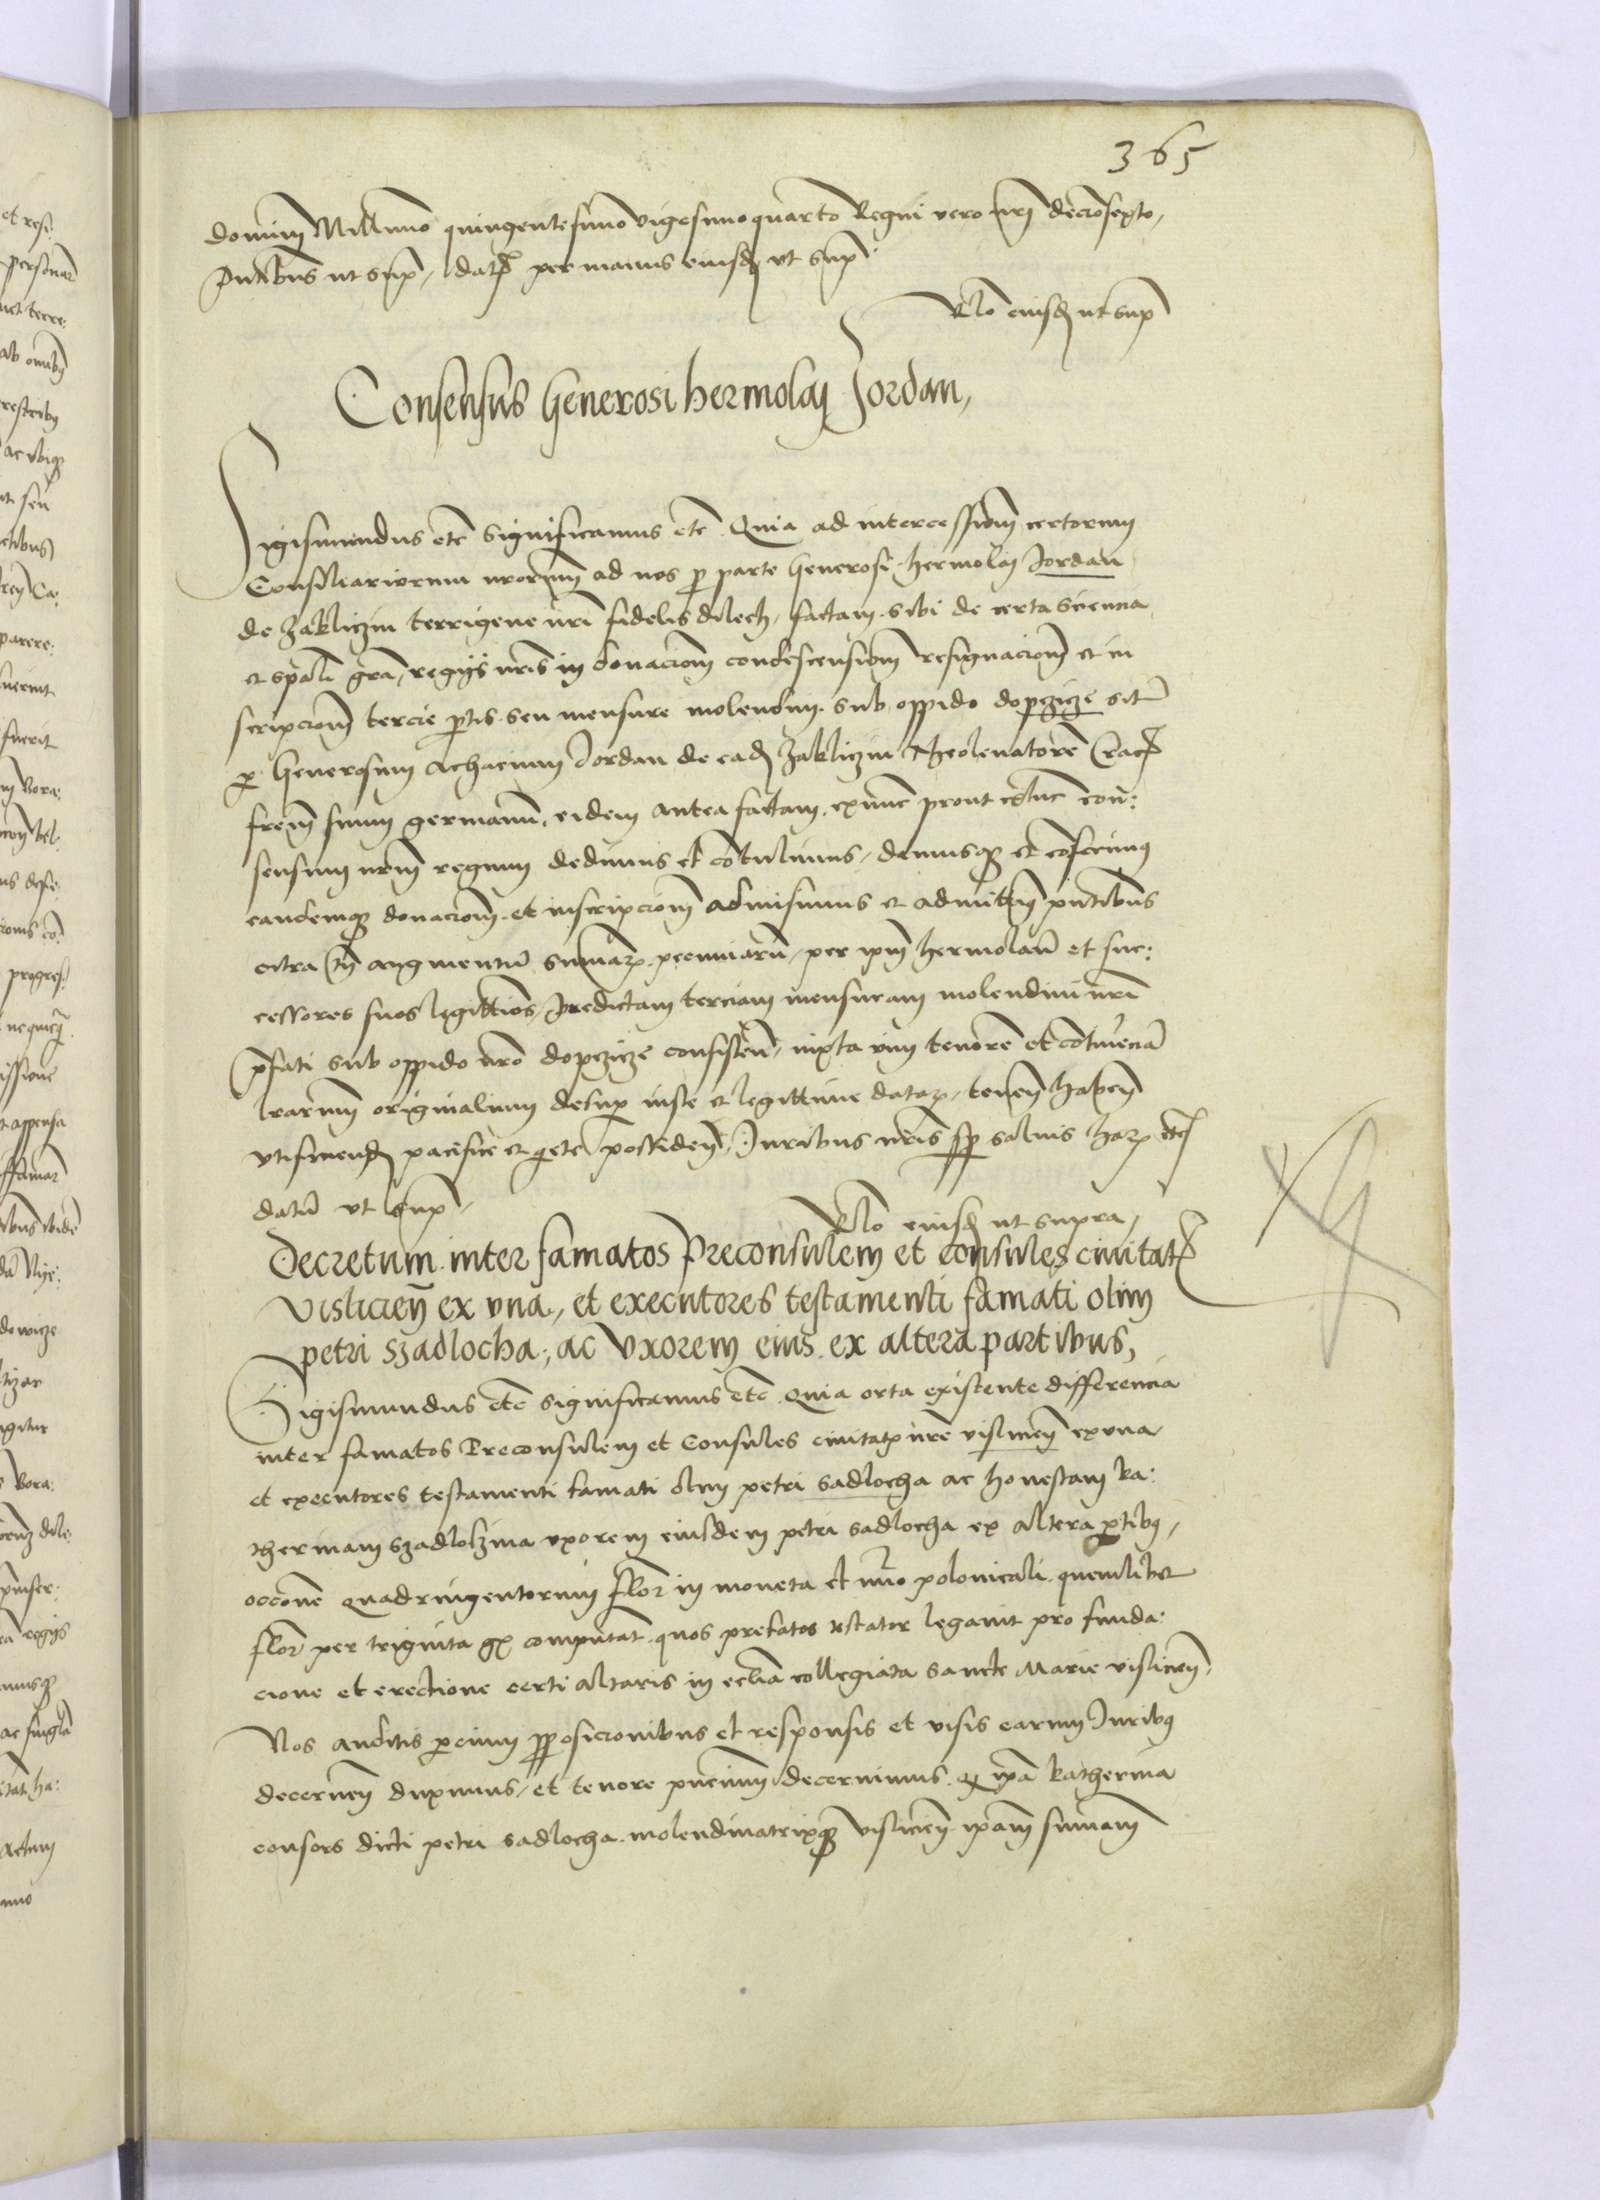 365
domini Millimo quingentesimo vigesimoquarto Regni vero nri decimosexto,
Pntibus ut sup, datp per manus eiusd ut sup
Rlo eiusd ut sup
Consensus Generosi hermolaj Jordan,
Sigismundus etc significamus etc Quia ad intercessionem certorum
Consiliariorum nrorum ad nos p parte Generosi hermolaj Jordan
de Zakliczin terrigene nri fidelis dilecti, factam sibi de certa sciencia
et spali gra, regijs nris in donacionem condescensionem resignacionem et in
scripcionem tercie ptis seu mensure molendini sub oppido dopczicze siti
p Generosum Achacium Jordan de ead Zakliczin Theolenatorem Crac
frem suum germanum, eidem antea factam, exnunc prout extunc con:
sensum nrm regium dedimus et cotulimus, damusq et coferimus
eandemq donacionem et inscripcionem admisimus et admittim pntibus
citra tn augmentum sumar pecuniaru, per ipm hermolaum et suc:
cessores suos legittimos, Predictam terciam mensuram molendini nri
pfati sub oppido nro dopczicze consisten, iuxta vim tenorem et cotinecia
lrarum originalium desup iuste et legittime datar, tenen haben
vtifruend pacifice et qete possiden, Juribus nris sp saluis har etc
datu vt sup,
Rlo eiusd ut supra,
Decretum inter famatos Preconsulem et consules ciuitat
Vislicien ex vna, et executores testamenti famati olim
petri Szadlocha, ac Vxorem eius ex altera partibus,
Sigismundus etc significamus etc Quia orta existente differencia
inter famatos Preconsulem et Consules ciuitatis nre vislicien exvna
et executores testamenti famati olim petri sadlocha ac honestam ka:
therinam Szadloszina vxorem eiusdem petri sadlocha ex altera ptibus,
occone quadringentorum flor in moneta et nuo polonicali quemlibet
flor per triginta gr computat quos prefatus testator legauit pro funda:
cione et erectione certi altaris in eclia collegiata sancte Marie vislicien,
Nos auditis parcium pposicionibus et responsis et visis earum Juribus
decernen duximus, et tenore pncium decernimus q ipa katherina
consors dicti petri sadlocha molendinatrixq vislicien ipam sumam